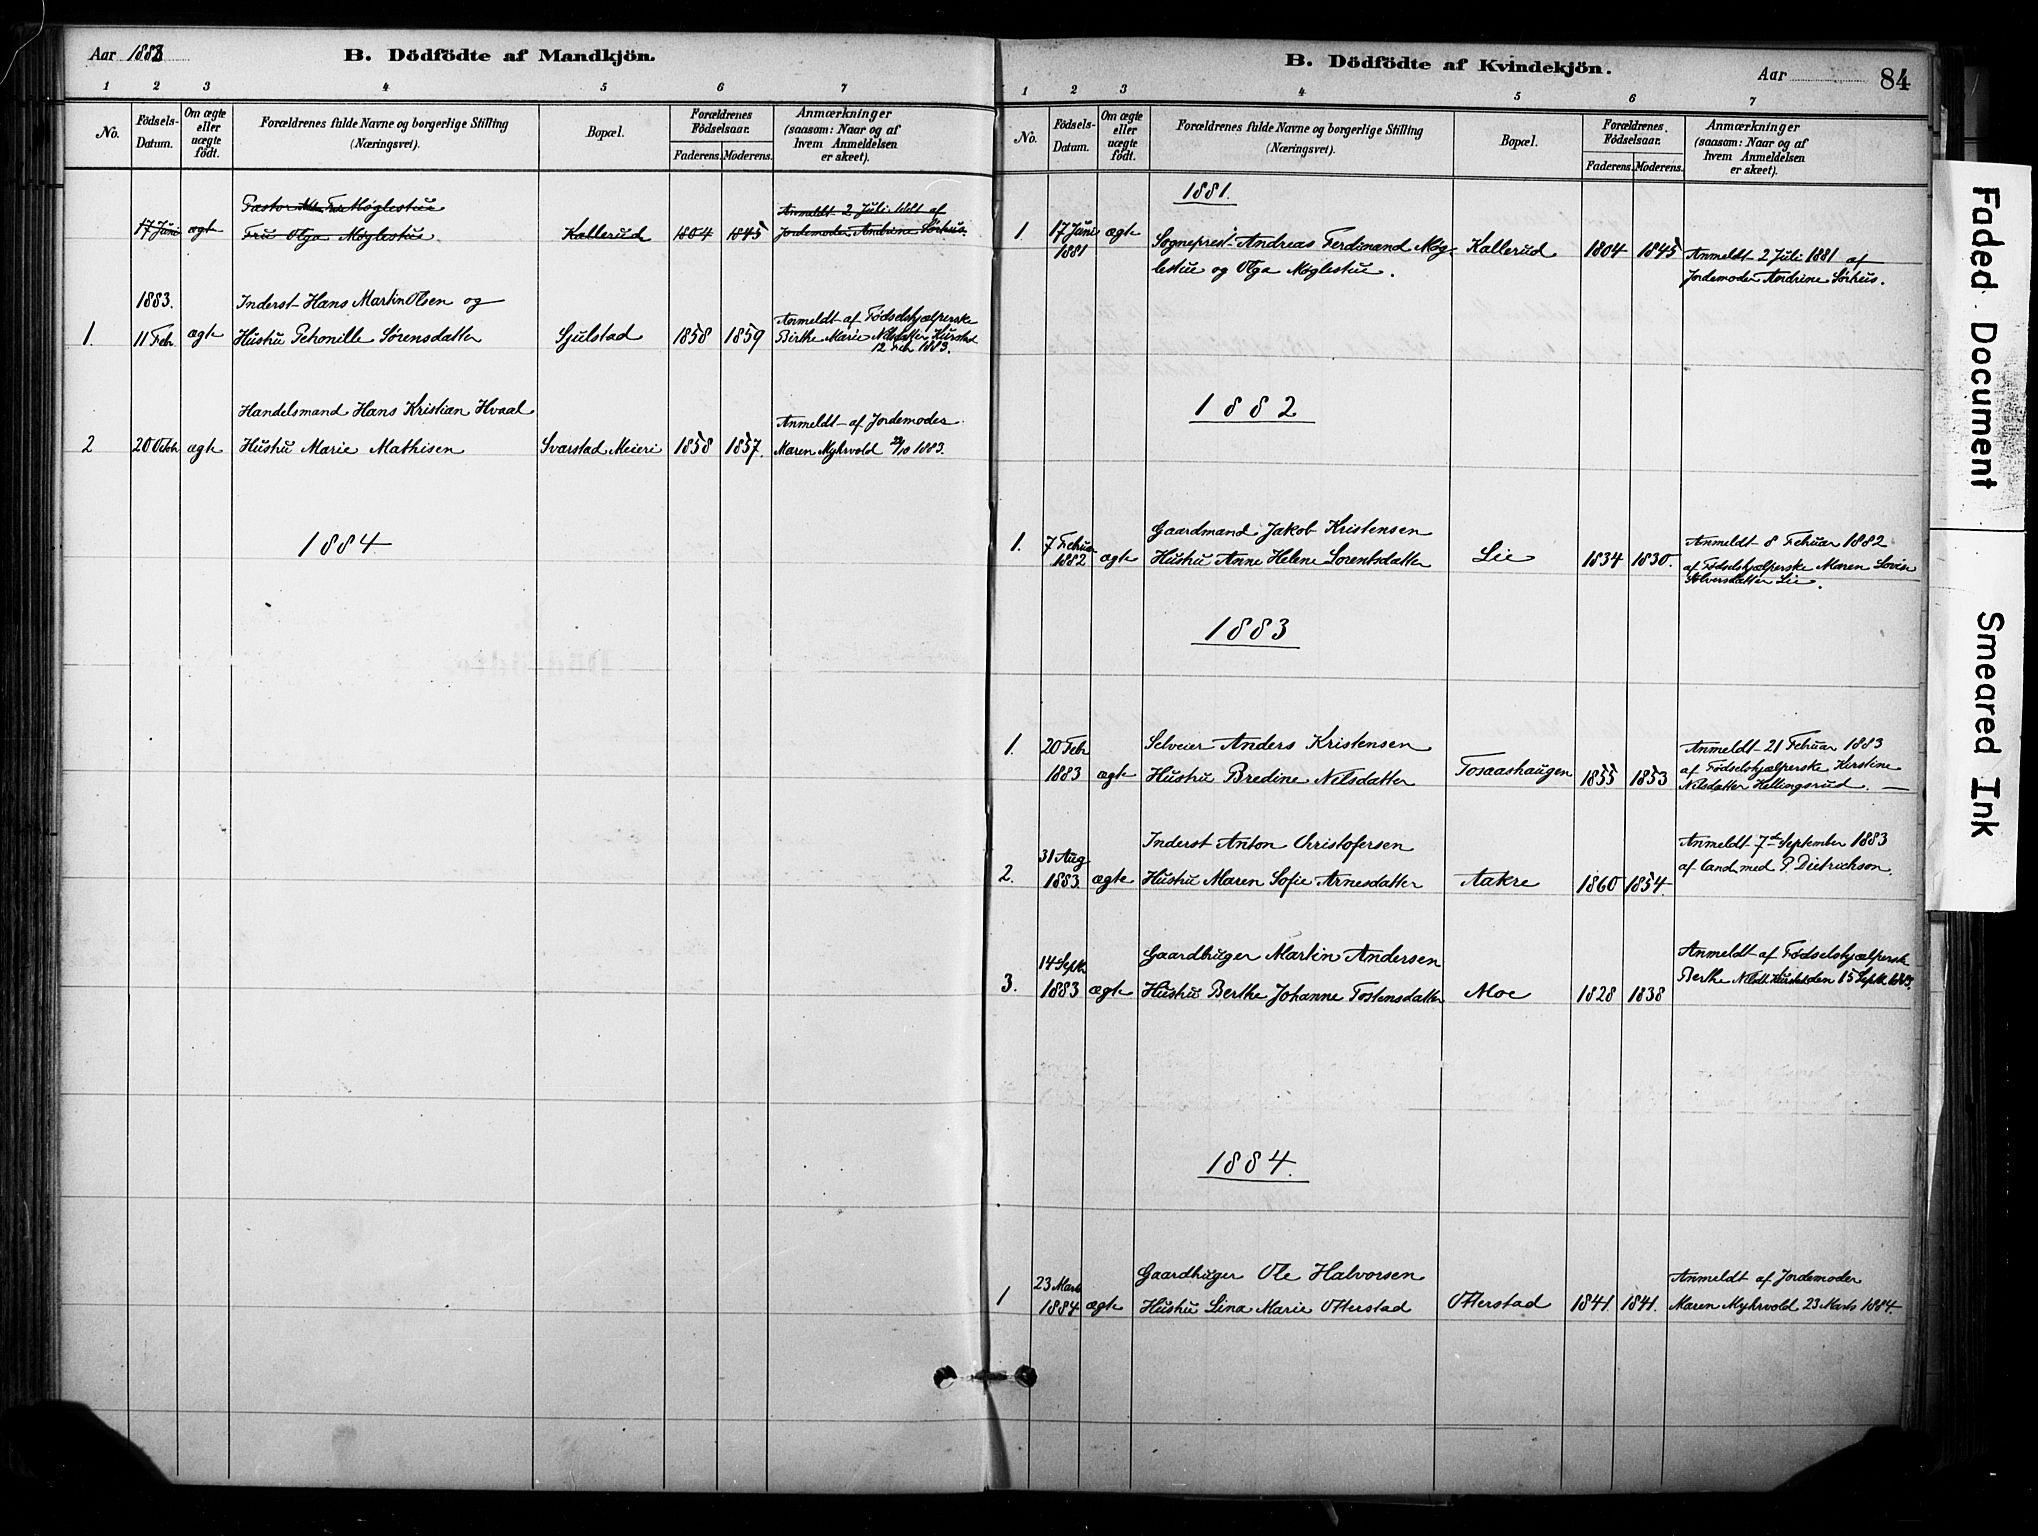 Aar 1883
B. Dödfödte af Mandkjön.
1 2 3 4 5 6 7
No.
Födsels-Datum.
Om ægte eller uægte født.
Forældrenes fulde Navne og borgerlige Stilling (Næringsvei).
Bopæl.
Forældrenes Födselsaar.
Faderens. Moderens.
Anmærkninger (saasom: Naar og af hvem Anmeldelsen er skeet).
Pastor Møglestue
17 Juni ægte Fru Olga Møglestue Kallerud 1804 1845
Anmeldt 2 Juli 1881 af
Jordemoder Andrine Sørhus
1883.
Inderst Hans Martin Olsen og
1. 11 Feb. ægte Hustru Petronille Sørensdatter Sjulstad 1858 1859
Anmeldt af Fødselshjælperske
Birthe Marie Nilsdatter
12 Feb 1883.
Handelsmand Hans Kristian Hvaal
2 20 Octbr ægte Hustru Marie Mathisen Svarstad Meieri 1858 1857.
Anmeldt af Jordemoder
Maren Myhrvold /10 1883.
1884
B. Dödfödte af Kvindekjön.
Aar
84
1 2 3 4 5 6 7
No.
Födsels-Datum.
Om ægte eller uægte født.
Forældrenes fulde Navne og borgerlige Stilling (Næringsvei).
Bopæl.
Forældrenes Födselsaar.
Faderens. Moderens.
Anmærkninger (saasom: Naar og af hvem Anmeldelsen er skeet).
1881.
1. 17 Juni 1881 ægte Sogneprest Andreas Ferdinand Møg-
lestue og Olga Møglestue. Kallerud 1804 1845
Anmeldt 2 Juli 1881 af
Jordemoder Andrine Sørhus.
1882
Gaardmand Jakob Kristensen
1. 7 Februar 1882 ægte Hustru Anne Helene Lorentsdatter Lie 1834 1830.
Anmeldt 8 Februar 1882
af Fødselshjælperske Maren Lovise
Lie.
1883
Selveier Anders Kristensen
1. 20 Feb 1883 ægte Hustru Bredine Nilsdatter Tosaashaugen 1855 1853
Anmeldt 21 Februar 1883
af Fødselshjælperske Kirstine
Nilsdatter Hellingsrud.
Inderst Anton Christofersen
2. 31 Aug 1883 ægte Hustru Maren Sofie Arnesdatter Aakre 1860 1854.
Anmeldt 7de September 1883
af Cand. med P. Dietrichson.
Gaardbruger Martin Andersen
3. 14 Septbr 1883 ægte Hustru Berthe Johanne Tostensdatter Moe 1828 1838
Anmeldt af Fødselshjælperske
Berthe den 15 Septbr 1883.
1884.
Gaardbruger Ole Halvorsen
1 23 Marts 1884 ægte Hustru Lina Marie Otterstad Otterstad 1841. 1841.
Anmeldt af Jordemoder
Maren Myhrvold 23 Marts 1884.
Faded Document
Smeared Ink